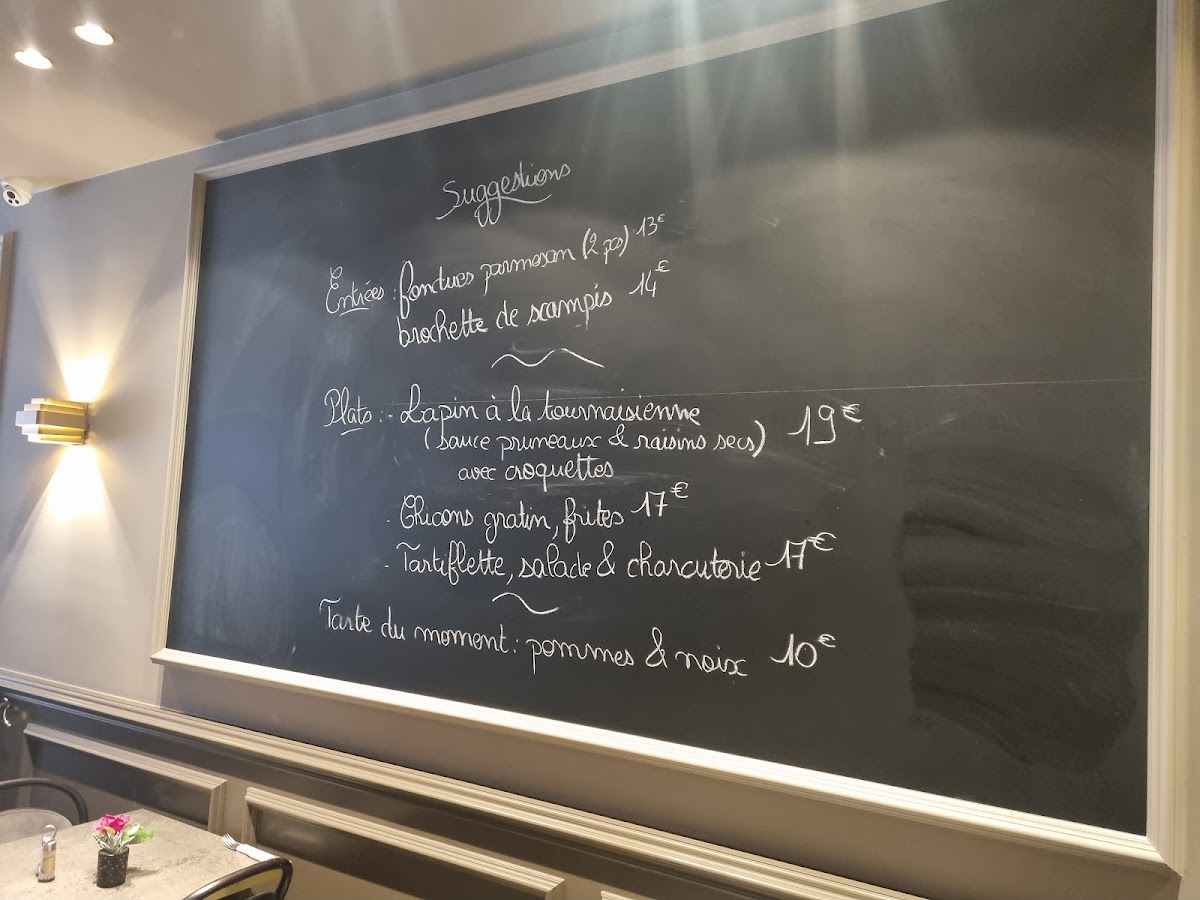 Suggestions
Entrées : fondues parmesan (2 pcs) 13€
brochette de scampis 14€
Plats : - Lapin à la tournaisienne 19€
(sauce pruneaux & raisins secs)
avec croquettes
- Chicons gratin, frites 17€
- Tartiflette, salade & charcuterie 17€
Tarte du moment : pommes & noix 10€